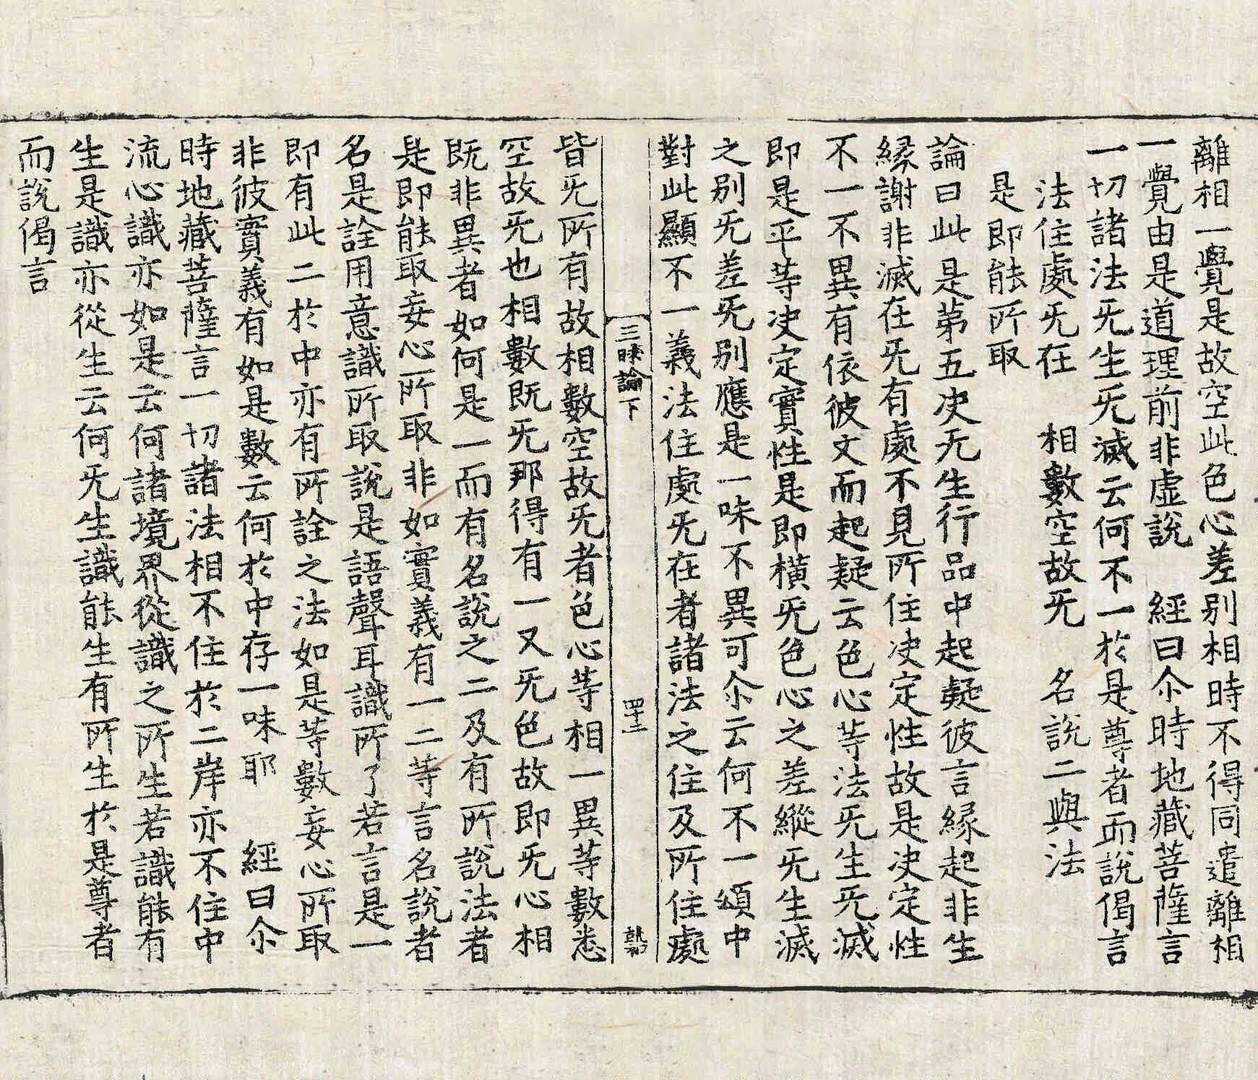 離相一覺是故空此色心差别相時不得同遣離相
一覺由是道理前非虛說　經曰尒時地藏菩薩言
一切諸法旡生旡滅云何不一於是尊者而說偈言
法住處旡在　相數空故旡　名說二與法
是即能所取
論曰此是第五决旡生行品中起疑彼言縁起非生
縁謝非滅在旡有處不見所住决定性故是决定性
不一不異有依彼文而起疑云色心等法旡生旡滅
即是平等决定實性是即橫旡色心之差縱旡生滅
之别旡差旡别應是一味不異可尒云何不一頌中
對此顯不一義法住處旡在者諸法之住及所住處
三昧論下　四十三
皆旡所有故相數空故旡者色心等相一異等數悉
空故旡也相數既旡那得有一又旡色故即旡心相
既非異者如何是一而有名說之二及有所說法者
是即能取妄心所取非如實義有一二等言名說者
名是詮用意識所取說是語聲耳識所了若言是一
即有此二於中亦有所詮之法如是等數妄心所取
非彼實義有如是數云何於中存一味耶　經曰尒
時地藏菩薩言一切諸法相不住於二岸亦不住中
流心識亦如是云何諸境界從識之所生若識能有
生是識亦從生云何旡生識能生有所生於是尊者
而說偈言